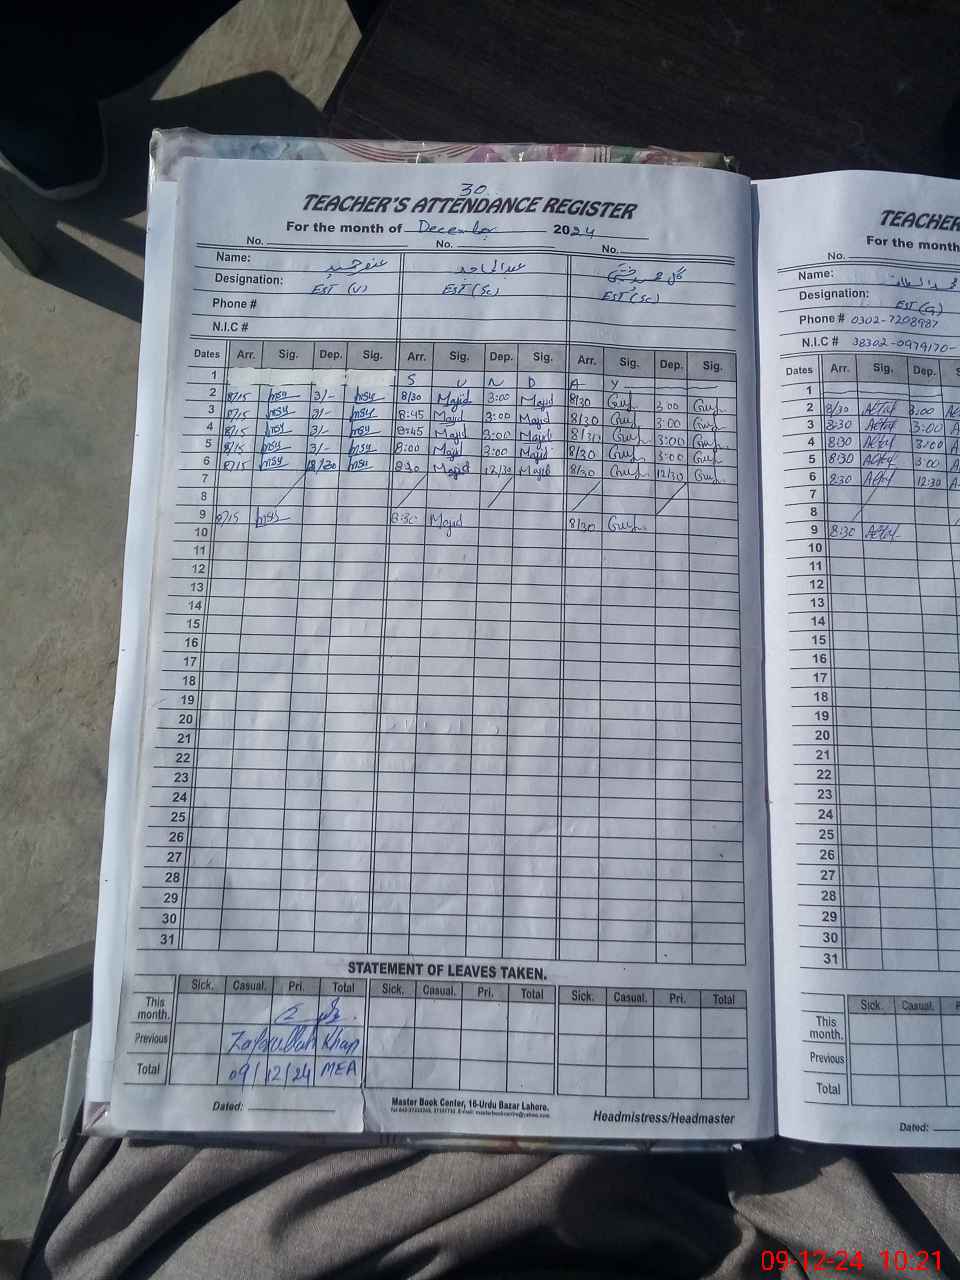 30
TEACHER'S ATTENDANCE REGISTER
For the month of December 2024
No. No. No.
Name:
Designation: EST (U) EST (Sc) EST (Sc)
Phone #
N.I.C #
Dates Arr. Sig. Dep. Sig. Arr. Sig. Dep. Sig. Arr. Sig. Dep. Sig.
1 S U N D A Y
2 8/15 3/- 8/30 Majid 3:00 Majid 8/30 3:00
3 8/15 3/- 8:45 Majid 3:00 Majid 8/30 3:00
4 8/15 3/- 8:45 Majid 3:00 Majid 8/30 3:00
5 8/15 3/- 8:00 Majid 3:00 Majid 8/30 3:00
6 8/15 12/30 8:30 Majid 12/30 Majid 8/30 12/30
7
8
9 8/15 8:30 Majid 8/30
10
11
12
13
14
15
16
17
18
19
20
21
22
23
24
25
26
27
28
29
30
31
STATEMENT OF LEAVES TAKEN.
Sick. Casual. Pri. Total Sick. Casual. Pri. Total Sick. Casual. Pri. Total
This month.
Previous Zafarullah Khan
Total 09/12/24 MEA
Dated:
Master Book Center, 16-Urdu Bazar Lahore.
Headmistress/Headmaster
TEACHER
For the month
No.
Name:
Designation: EST (G)
Phone # 0302-7208987
N.I.C # 38302-0979170-
Dates Arr. Sig. Dep.
1
2 8/30 3:00
3 8:30 3:00
4 8:30 3:00
5 8:30 3:00
6 8:30 12:30
7
8
9 8:30
10
11
12
13
14
15
16
17
18
19
20
21
22
23
24
25
26
27
28
29
30
31
Sick. Casual.
This month.
Previous
Total
Dated:
09-12-24 10:21